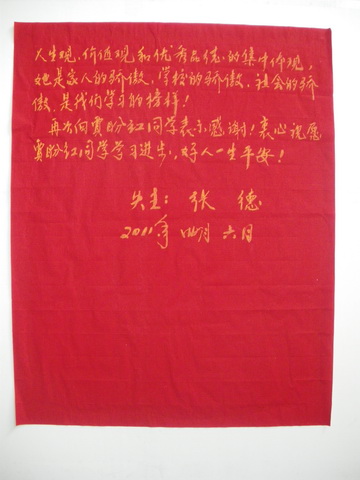 人生观、价值观和优秀品德的集中体现,
她是家人的骄傲,学校的骄傲,社会的骄
傲,是我们学习的榜样!
再次向贾盼红同学表示感谢!衷心祝愿
贾盼红同学学习进步,好人一生平安!
失主:张德
2011年四月六日